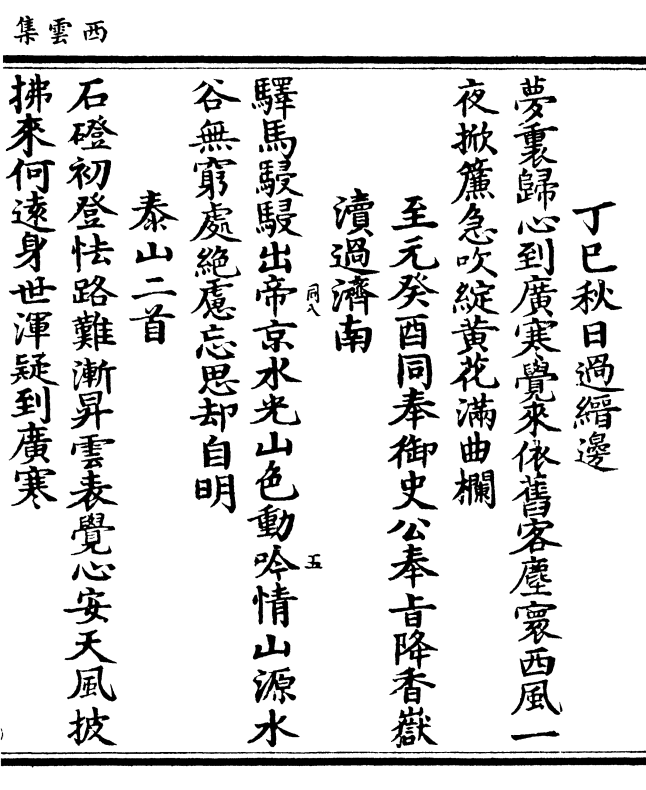 西雲集
丁巳秋日過縉邊
夢裏歸心到廣寒覺來依舊客塵寰西風一
夜掀簾急吹綻黃花滿曲欄
至元癸酉同奉御史公奉旨降香嶽
瀆過濟南
驛馬駸駸出帝京水光山色動吟情山源水
同八
五
谷無窮處絶慮忘思却自明
泰山二首
石磴初登怯路難漸昇雲表覺心安天風披
拂來何遠身世渾疑到廣寒